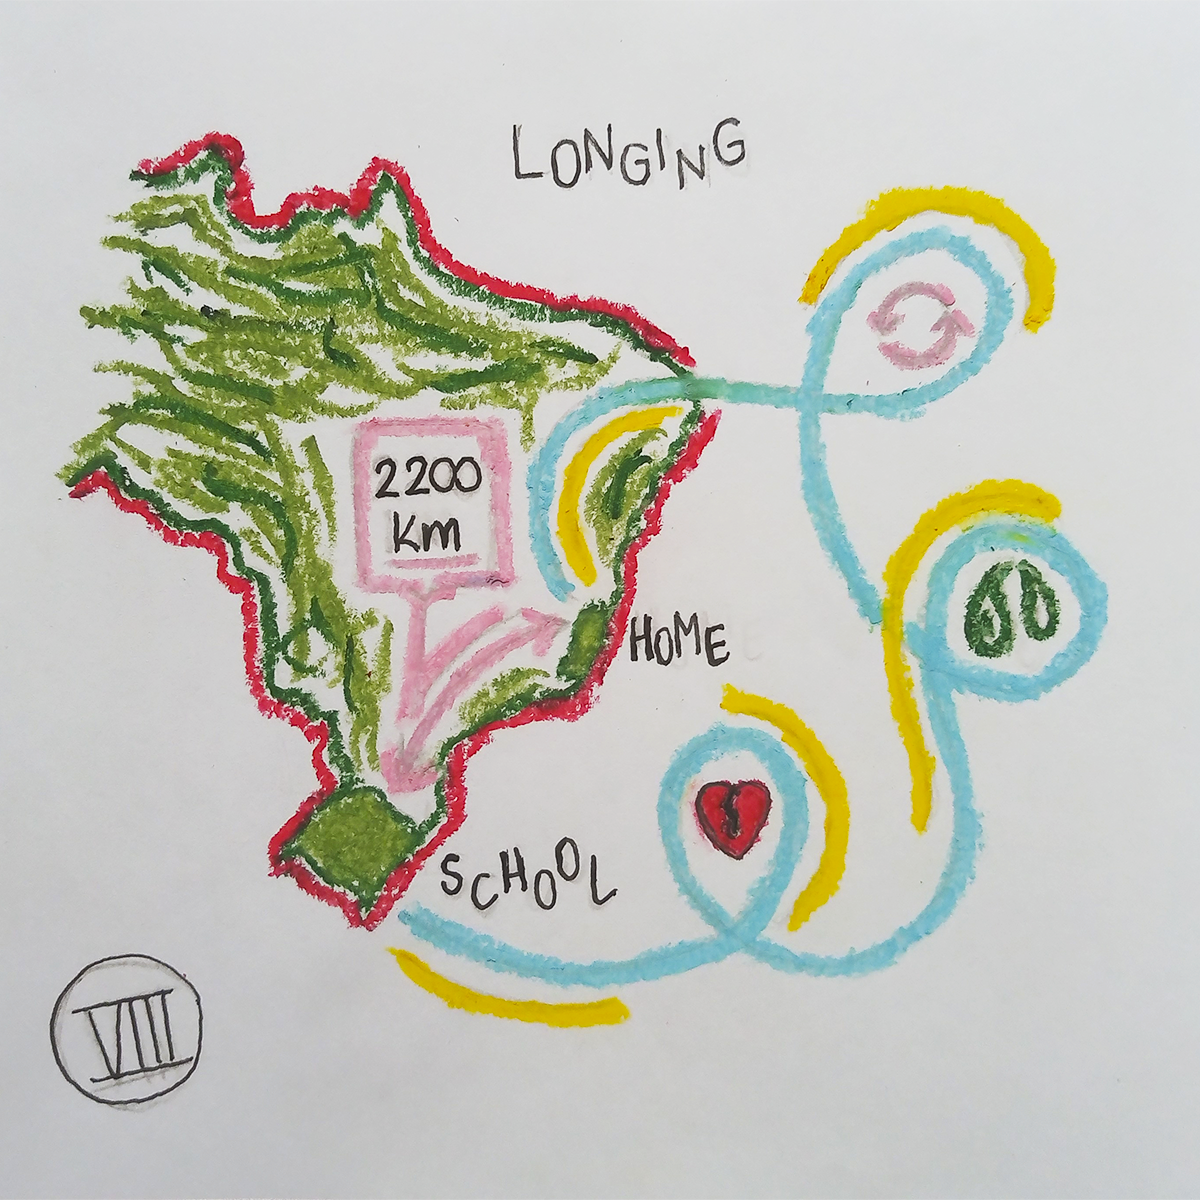 LONGING
2200
Km
HOME
SCHOOL
VIII